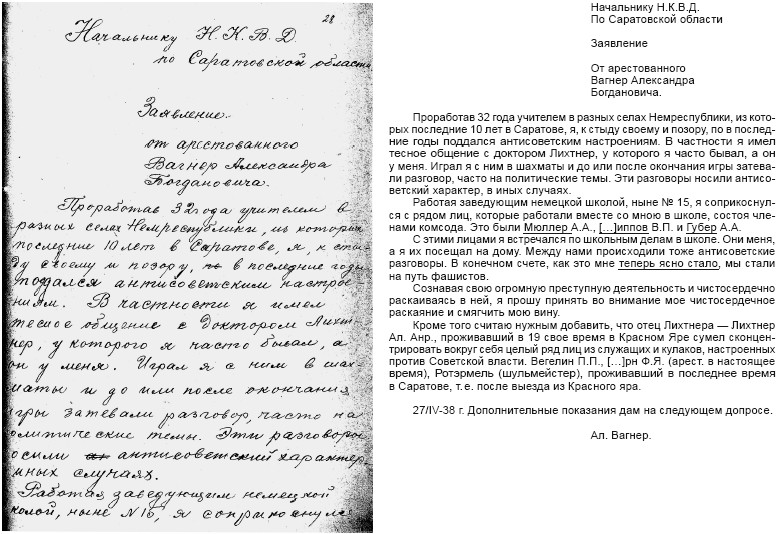 28
Начальнику Н.К.В.Д.
по Саратовской области
Заявление.
от арестованного
Вагнер Александра
Богдановича.
Проработав 32 года учителем в
разных селах Немреспублики, из которых
последние 10 лет в Саратове, я, к сты-
ду своему и позору, по в последние годы
поддался антисоветским настрое-
ниям. В частности я имел
тесное общение с доктором Лихт-
нер, у которого я часто бывал, а
он у меня. Играл я с ним в шах-
маты и до или после окончания
игры затевали разговор, часто на
олитические темы. Эти разговоры
осили антисоветский характер,
иных случаях.
Работая заведующим немецкой
колой, ныне №15, я соприкоснулс
Начальнику Н.К.В.Д.
По Саратовской области
Заявление
От арестованного
Вагнер Александра
Богдановича.
Проработав 32 года учителем в разных селах Немреспублики, из кото-
рых последние 10 лет в Саратове, я, к стыду своему и позору, по в послед-
ние годы поддался антисоветским настроениям. В частности я имел
тесное общение с доктором Лихтнер, у которого я часто бывал, а он
у меня. Играл я с ним в шахматы и до или после окончания игры затева-
ли разговор, часто на политические темы. Эти разговоры носили антисо-
ветский характер, в иных случаях.
Работая заведующим немецкой школой, ныне № 15, я соприкоснул-
ся с рядом лиц, которые работали вместе со мною в школе, состоя чле-
нами комсода. Это были Мюллер А.А., [...]иппов В.П. и Губер А.А.
С этими лицами я встречался по школьным делам в школе. Они меня,
а я их посещал на дому. Между нами происходили тоже антисоветские
разговоры. В конечном счете, как это мне теперь ясно стало, мы стали
на путь фашистов.
Сознавая свою огромную преступную деятельность и чистосердечно
раскаиваясь в ней, я прошу принять во внимание мое чистосердечное
раскаяние и смягчить мою вину.
Кроме того считаю нужным добавить, что отец Лихтнера — Лихтнер
Ал. Анр., проживавший в 19 свое время в Красном Яре сумел сконцен-
трировать вокруг себя целый ряд лиц из служащих и кулаков, настроенных
против Советской власти. Вегелин П.П., [...]рн Ф.Я. (арест. в настоящее
время), Ротэрмель (шульмейстер), проживавший в последнее время
в Саратове, т.е. после выезда из Красного яра.
27/IV-38 г. Дополнительные показания дам на следующем допросе.
Ал. Вагнер.